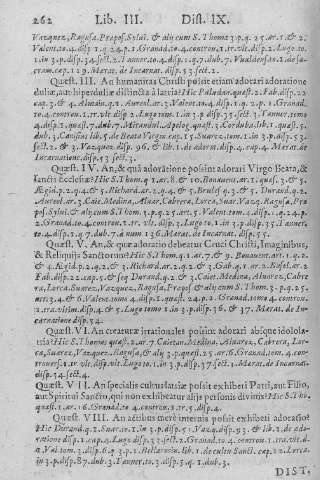 262 Lib. III. Dist. IX.
Vazquez, Ragusa, Prapos. Sylui. & alij cum S. Thom. 3. p. q. 25. ar. 1. & 2.
Valent. to. 4. disp. 1. q. 24. p. 1. Granad. to. 4. controu. 1. tr. vlt. disp. 2. Lugo to.
1. in 3. p. disp. 34. sect. 2. Tanner. to. 4. disp. 1. q. 7. dub. 7.
cram. cap. 12 p. Marat. de Incarnat. disp. 53. sect. 2.
Quæst. III. An humanitas Christi possit etiam adorari adoratione
duliæ, aut hyperduliæ distincta à latria? Hic Paludan. quæst. 2. Fab. disp. 22
cap. 3. & 4. Almain. q. 2. Aureol. ar. 3. Valent. to. 4. disp. 1. q. 2. p. 1. Granad.
to. 4. controu. 1. tr. vlt. disp. 2. Lugo tom. 1. in 3. p. disp. 35. sect. 3. Tanner. tomo
4. disp. 1. quæst. 7. dub. 7. Apolog. quæst. 3. Corduba lib. 1. quæst. 5.
dub. 3. lib. 5. de Beata Virgine cap. 1. Suarez. tom. 1. in 3. p. disp. 53.
sect. 2. & 3. Vazquez disp. 96. & lib. 1. de adorat. disp. 4. cap. 4. Marat. de
Incarnatione disp. 53 sect. 3.
Quæst. IV. An, & quâ adoratione possint adorari Virgo Beata, &
sancti Ecclesiæ? Hic S. Thom. q. 1. ar. 8. & 10. Bonauent. ar. 1. quæst. 3. & 5.
Ægid. p. 2. q. 4. & 5. Richard. ar. 2. q. 4. & 5. Brulef. q. 3. & 5. Durand. q. 2.
Aureol. ar. 3. Caie. Medina, Aluar, Cabrera, Lorca, Suar. Vazq. Ragusa, Pra
pos. Sylui. & alij cum S. Thom. 3. p. q. 25. art. 5. Valent. tom. 4. disp. 1. q. 24. p. 2.
Granad. to. 4. controu. 1. tr. vlt. disp. 3. Lugo to. 1. in 3. p. disp. 35. Tanner.
to. 4. disp. 1. q. 7. dub. 7. à num 136. Marat. de Incarnat. disp. 55.
Quæst. V. An, & quæ adoratio debeatur Cruci Christi, Imaginibus,
& Reliquijs Sanctorum? Hic S. Thom. q. 1. ar. 7. & 9. Bonauent. ar. 1. q. 2.
& 4. Ægid. p. 2. q. 2. & 3. Richard. ar. 2. q. 2. & 3. Gab. q. 1. ar. 2. Rosel. ar. 2
Fab. disp. 22. cap. 5. & seq Durand. q. 2. & 3. Caie. Medina, Aluarez, Cabre
ra, Lorca. Suarez, Vazquez, Ragusa, Prapos. & alij cum S. Thom. 3. p. q. 25.
art. 3. 4. & 6. Valent. tomo 4. disp. 1. quæst. 24. p. 2. Granad. tomo 4. controu.
2. tra. vltim. disp. 4. & 5. Lugo tomo 1 in 3. p. disp. 36. & 37. Marat. de In-
carnatione disp. 54.
Quæst. VI. An creaturæ irrationales possint adorari absque idolola-
tria? Hic S. Thomas quæst. 2. ar. 7. Caietan. Medina, Aluarez, Cabrera, Lor-
ca, Suarez, Vazquez, Ragusa, & alij 3. p. quæst. 25. Granad. tom. 4. con-
trouers. 1. tr. vlt. disp. vlt. Lugo to. 1. in 3. p. disp. 37. sect. 1. Marat. de Incarnat.
disp. 54. sect. 4.
Quæst. VII. An specialis cultus latriæ possit exhiberi Patri, aut Filio,
aut Spiritui Sancto, qui non exhibeatur alijs personis diuinis? Hic S. Thom.
quæst. 1. ar. 16. Granad. to 4. controu. 10. tr. 5. disp. 4.
Quæst. VIII. An actibus merè internis possit exhiberi adoratio?
Hic Durand. q. 2. Suar. to. 1. in 3. p. disp. 51. sect. 2. Vazq. ib. & lib. 1. de ado-
ratione disp. 1. cap. 4. Lugo disp. 33. sect. 2. Granad. to. 4. controu. 1. tra. vlt. di.
2. Val. tom. 3. disp. 6. q. 3. p. 1. Bellarmin. lib. 1. de cultu Sanct. cap. 12. Lorca
in 3. p. disp. 87. dub. 3. Tanner. to. 3. disp. 5. q. 2. dub. 3.
DIST.